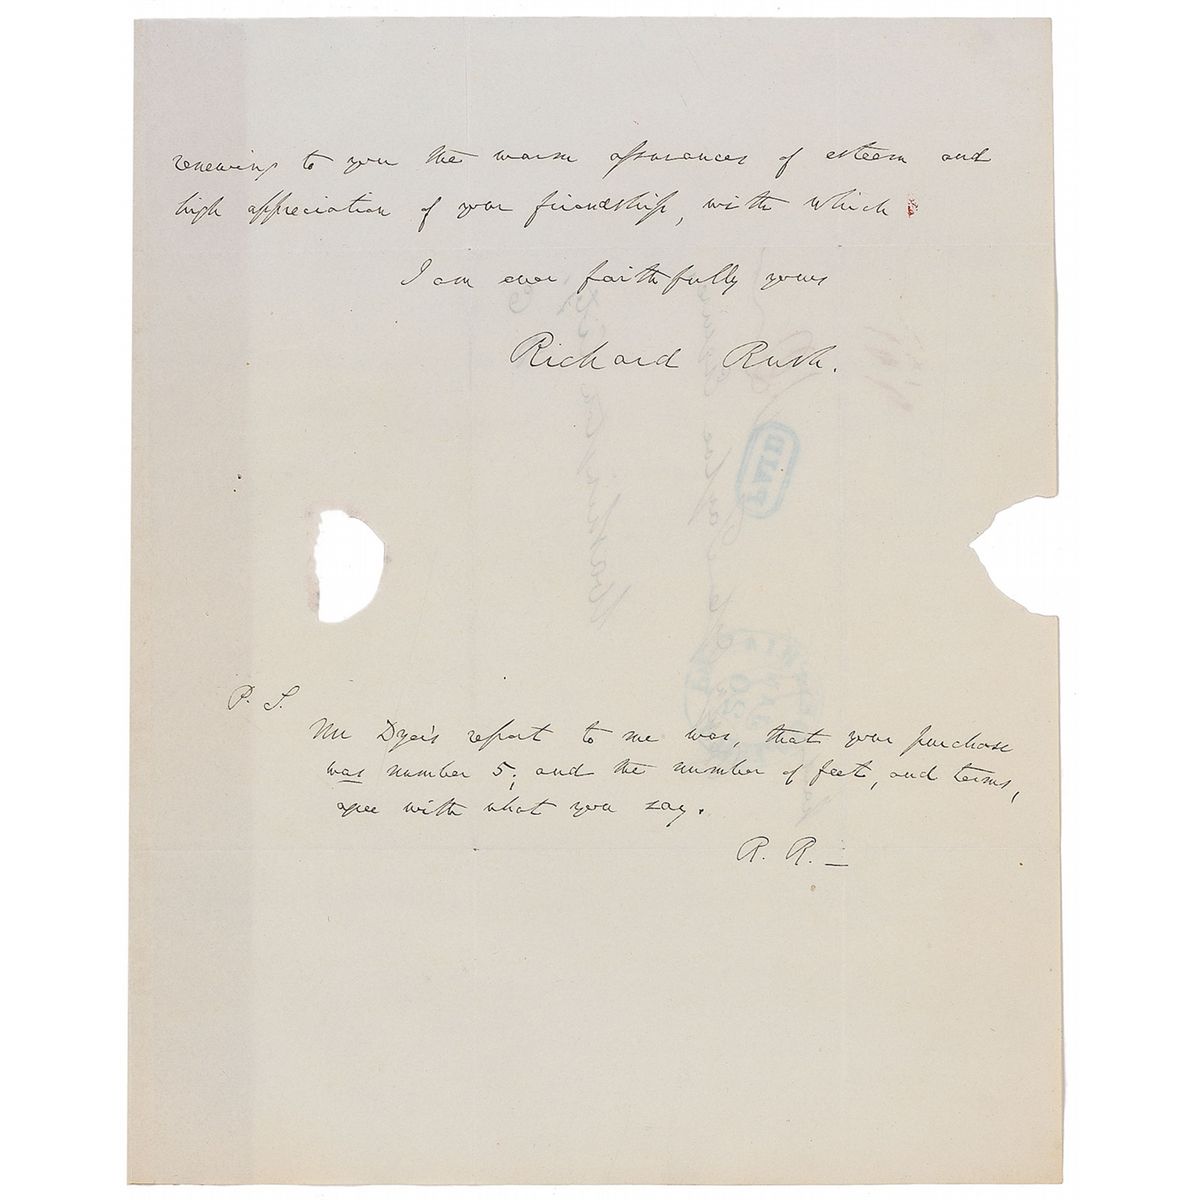 renewing to you the warm assurances of esteem and
high appreciation of your friendship, with which
I am ever faithfully yours
Richard Rush.
PAID
20
P. S.
Mr Dyer's report to me was, that your purchase
was number 5; and the number of feet, and terms,
agree with what you say.
R. R. _